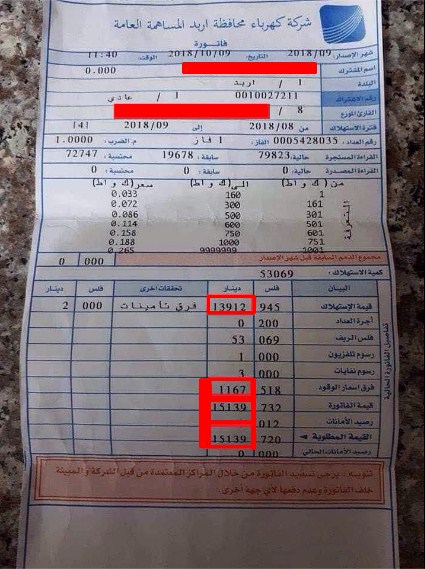 شركة كهرباء محافظة اربد المساهمة العامة
فاتورة
شهر الإصدار: 2018/09 التاريخ: 2018/10/09 الوقت: 11:40
اسم المشترك 0.000
البلدة 1 / اربد
رقم الاشتراك 0010027211 1 / عادي
القارئ الموزع 8 /
فترة الاستهلاك من 2018/08 إلى 2018/09 (41
رقم العداد: 0005428035 1 فاز م.الضرب: 1.0000
القراءة المستجرة حالية: 79823 سابقة: 19678 محتسبة: 72747
القراءة المصدرة حالية: 0 سابقة: 0 محتسبة: 0
التعرفة
من(ك و اط) إلى(ك و اط) سعر(ك و اط)
1 160 0.033
161 300 0.072
301 500 0.086
501 600 0.114
601 750 0.158
751 1000 0.188
1001 9999999 0.265
مجموع الذمم السابقة قبل شهر الإصدار 000 0
كمية الاستهلاك: 53069
البيان فلس دينار تحققات أخرى فلس دينار
تفاصيل الفاتورة الحالية
قيمة الإستهلاك 945 13912 فرق تأمينات 000 2
أجرة العداد 200 0
فلس الريف 069 53
رسوم تلفزيون 000 1
رسوم نفايات 000 3
فرق اسعار الوقود 518 1167
قيمة الفاتورة 732 15139
رصيد الأمانات 012
القيمة المطلوبة 720 15139
رصيد الأمانات الحالي 000 0
تنويه: يرجى تسديد الفاتورة من خلال المراكز المعتمدة من قبل الشركة و المبينة
خلف الفاتورة وعدم دفعها لأي جهة أخرى.